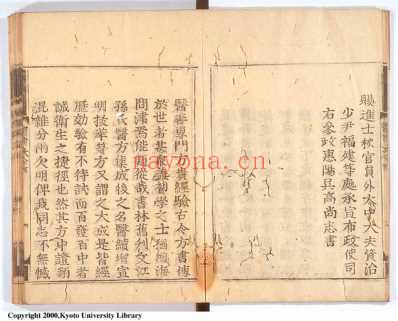 賜進士秘官員外太中大夫資治
少尹福建等處承宣布政使司
右參政惠陽兵高尚志書
醫學專門貴經驗古今方書傳
於世者甚初學之士
閒焉能從哉書林舊刻文江
孫氏醫方集成後之名醫續增宣
明拔萃等方又謂之大成是皆經
歷効驗有不待試而百發百中者
誠衛生之捷徑也然其方中證類
混雜分兩欠明俾我同志不無憾
Copyright 2000,Kyoto University Library